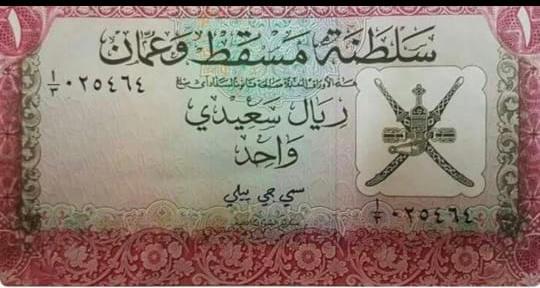 ١
سلطنة مسقط وعمان
١/٢ ٠٢٥٤٦٤
ريال سعيدي
واحد
سي جي بيلي
١/٢ ٠٢٥٤٦٤